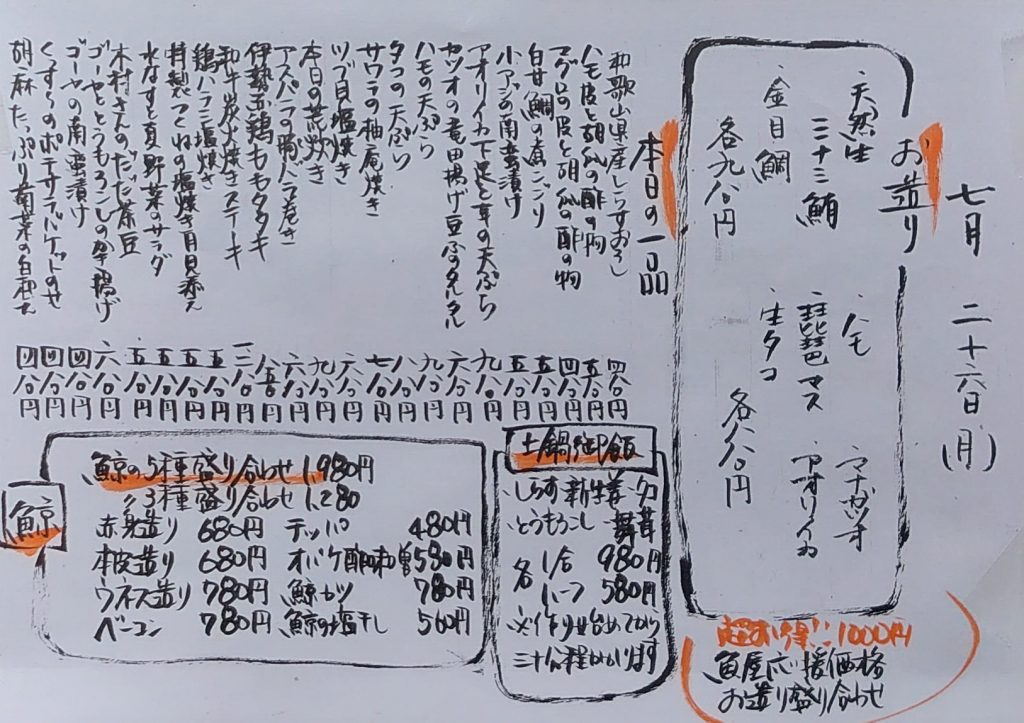 七月 二十六日(月)
お造り
・天然生ミナミ鮪
・金目鯛
各九八〇円
・ハモ ・マナガツオ
・琵琶マス ・アオリイカ
・生タコ
各八八〇円
超お得!! 1000円
魚屋応援価格
お造り盛り合わせ
本日の一品
和歌山県産しらすおろし 四八〇円
ハモ皮と胡瓜の酢の物 五八〇円
マグロの皮と胡瓜の酢の物 四八〇円
白甘鯛の煮こごり 五八〇円
小アジの南蛮漬け 五八〇円
アオリイカ下足と茸の天ぷら 九八〇円
カツオの竜田揚げ豆ふのタルタル 六八〇円
ハモの天ぷら 九八〇円
タコの天ぷら 八八〇円
サワラの柚庵焼き 七八〇円
ツブ貝塩焼き 六八〇円
本日の荒炊き 九八〇円
アスパラの豚バラ巻き 六八〇円
伊勢赤鶏ももタタキ 八五〇円
和牛炭火焼きステーキ
鶏ハラミ塩焼き 五八〇円
特製つくねの塩焼き月見添え 五八〇円
水なすと夏野菜のサラダ 五八〇円
木村さんのだだ茶豆 五八〇円
ゴーヤとうもろこしの発揚げ 六八〇円
ゴーヤの南蛮漬け 四八〇円
くんすぅのポテサラバケットのせ 四八〇円
胡麻たっぷり南京の白和え 四八〇円
土鍋御飯
・しらす 新生姜 夕
・とうもろこし 舞茸
各 1合 980円
ハーフ 580円
※作り始めてから
三十分程かかります
鯨
鯨の5種盛り合わせ 1,980円
〃3種盛り合わせ 1,280
赤身造り 680円 テッパ 480円
本皮造り 680円 オバケ酢味噌 580円
ウネス造り 780円 鯨カツ 780円
ベーコン 780円 鯨の塩干し 560円